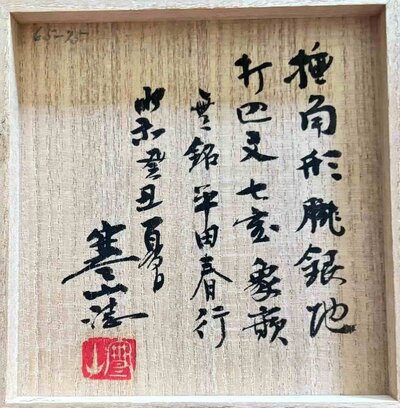 65-75
撫角形朧銀地
打巴文七宝象嵌
無銘平田春行
昭和癸丑夏日
寒山誌
寒山